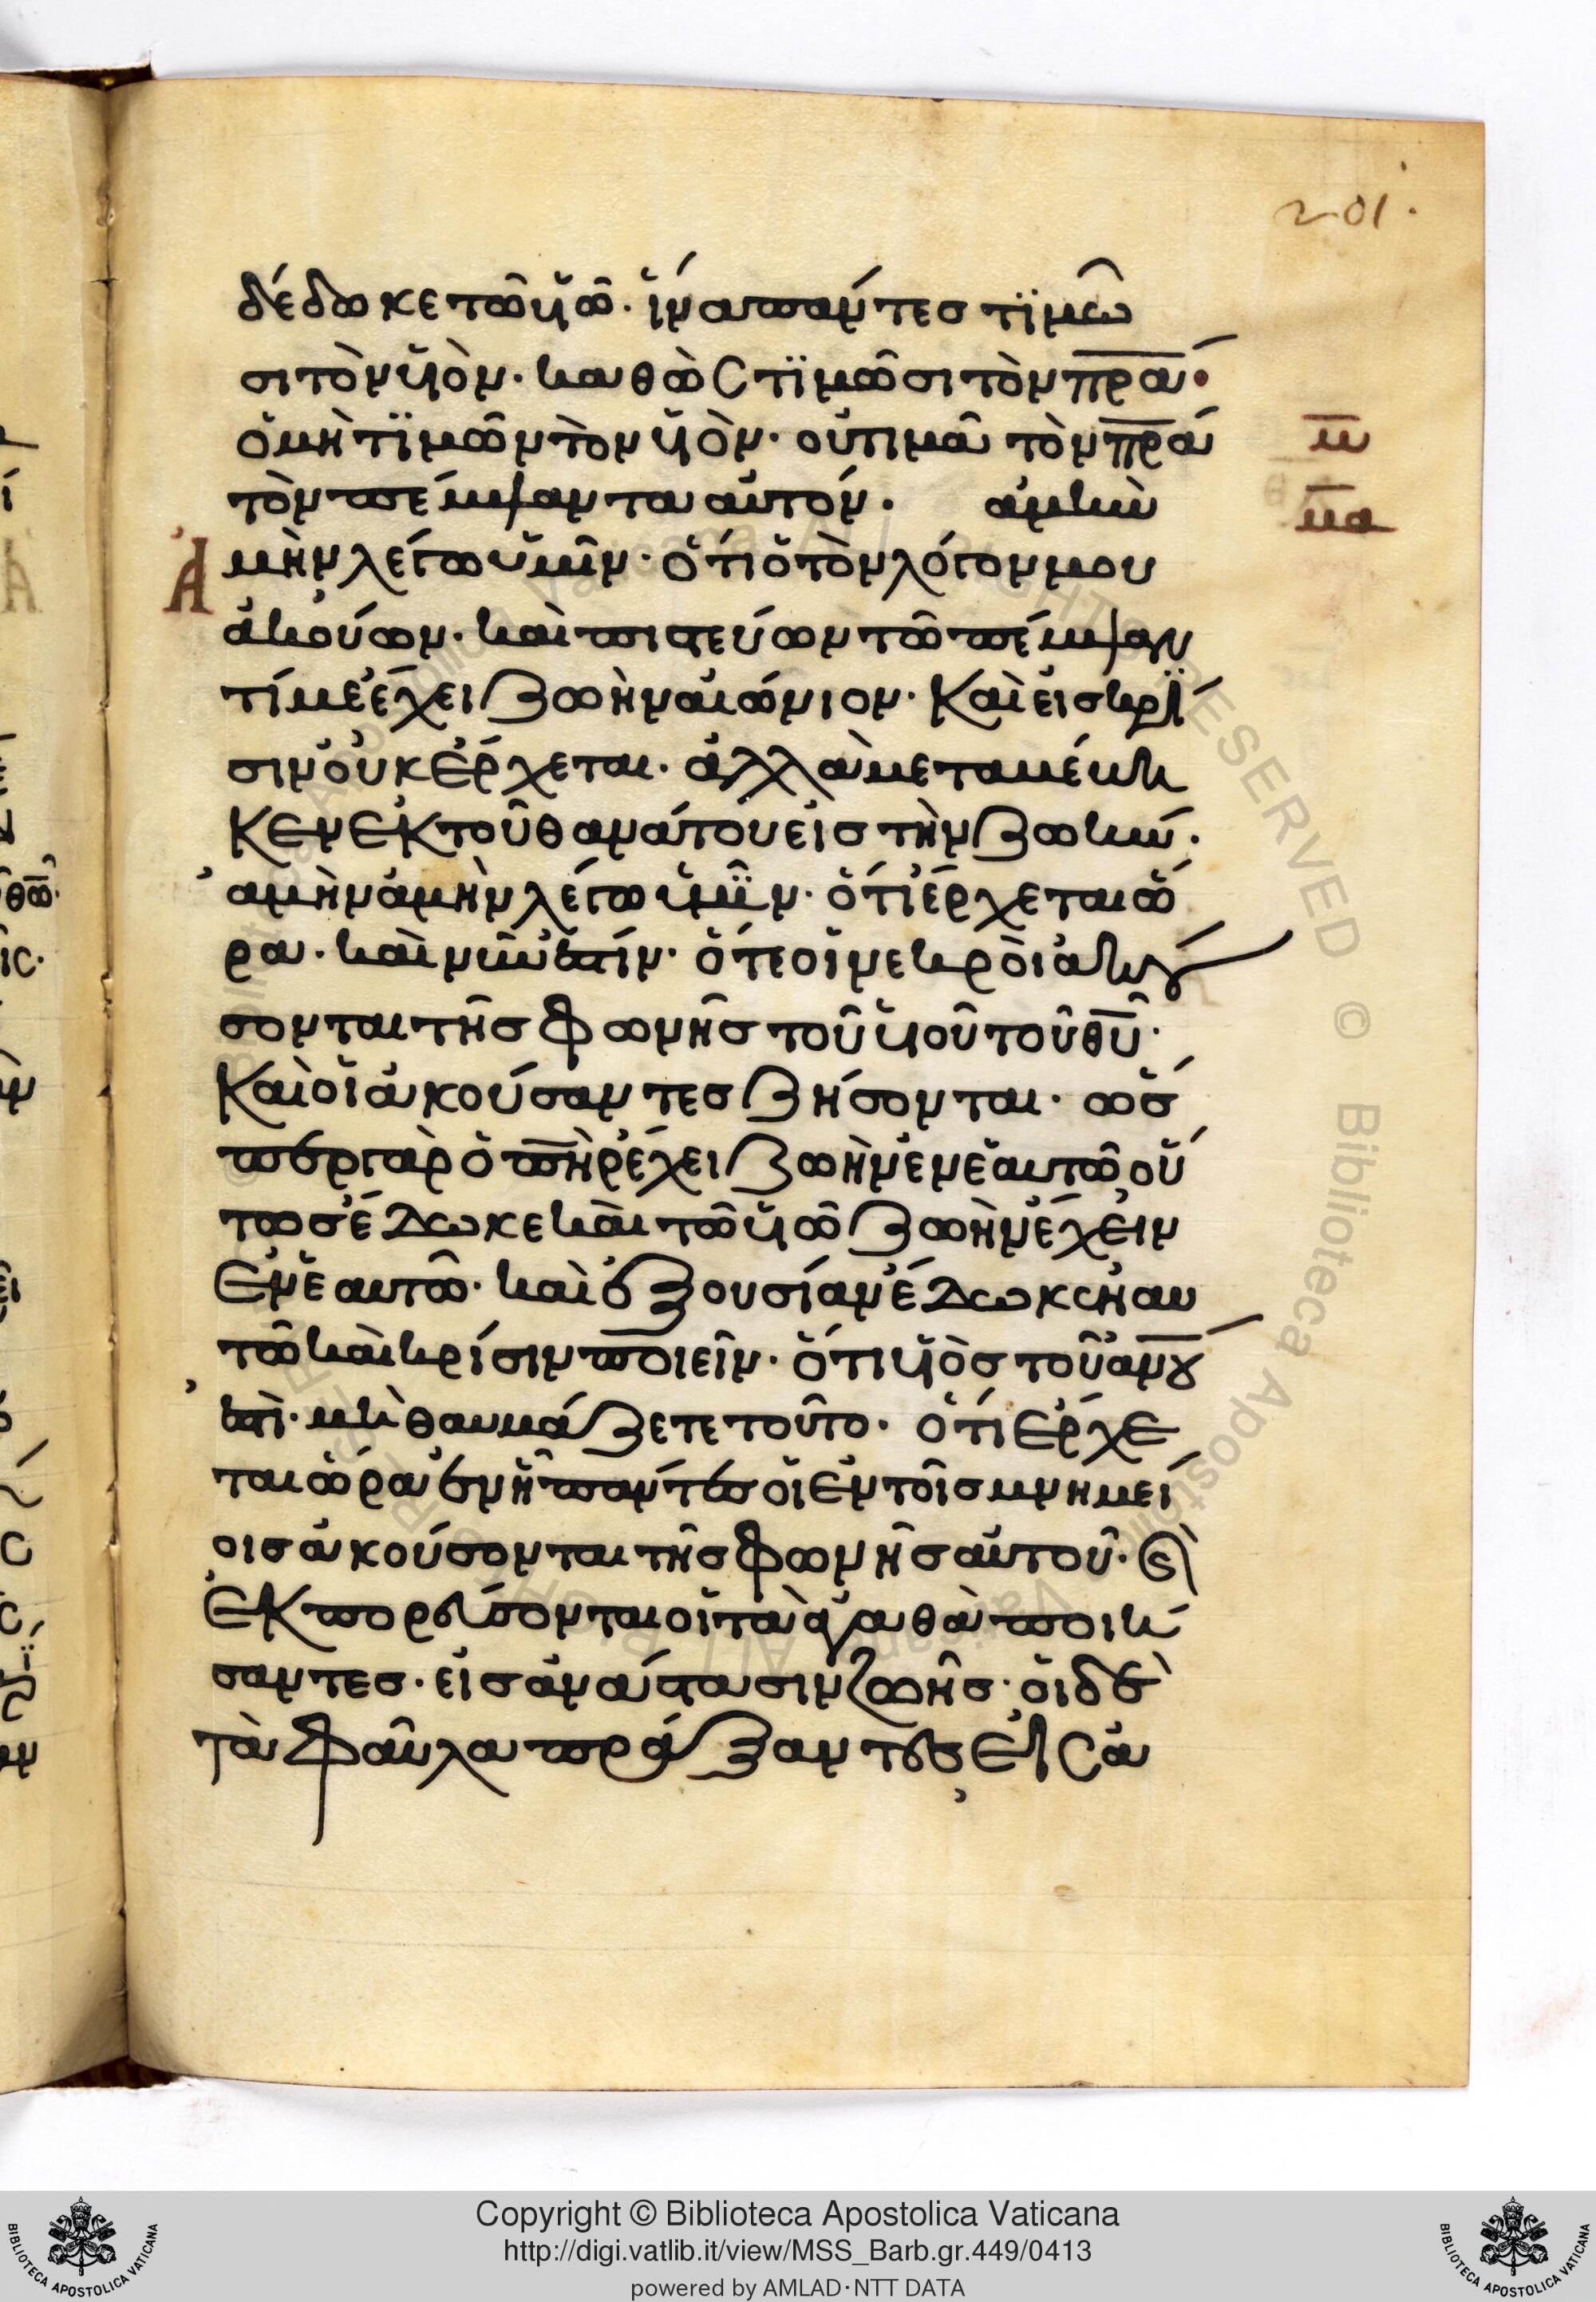 201.
δέδωκε τῶ ὑῶ. ἵνα πάντες τϊμῶ
σι τὸν ὑὸν. καθὼς τϊμῶσι τὸν πρα·
ὁ μὴ τϊμῶν τὸν ὑὸν. οὐ τιμᾶ τὸν πρα
μ
τὸν πέμψαντα αὐτόν. ἀμὴν
μα
Ἀμὴν λέγω ὑμῖν. ὅτι ὁ τὸν λόγον μου
ἀκούων. καὶ πιστεύων τῶ πέμψαν
τί με ἔχει ζωὴν αἰώνιον. Καὶ εἰς κρί
σιν οὐκ ἔρχεται. ἀλλὰ μεταμέβη
κεν ἐκ τοῦ θανάτου εἰς τὴν ζωήν.
ἀμὴν ἀμὴν λέγω ὑμῖν. ὅτι ἔρχεται ὥ
ρα. καὶ νῦν ἐστίν. ὅτε οἱ νεκρὸι ἀκού
σονται τῆς φωνῆς τοῦ ὑοῦ τοῦ θυ.
Καὶ οἱ ἀκούσαντες ζήσονται. ὥσ
περ γὰρ ὁ πηρ ἔχει ζωὴν ἐν ἑαυτῶ οὕ
τως ἔδωκε καὶ τῶ ὑῶ ζωὴν ἔχειν
ἐν ἑαυτῶ. καὶ ἐξουσίαν ἔδωκεν αυ
τῶ καὶ κρίσιν ποιεῖν. ὅτι ὑὸς τοῦ ανου
ἐστὶ. μὴ θαυμάζετε τοῦτο. ὅτι ἔρχε
ται ὥρα ἐν ἧ πάντες οἱ ἐν τοῖς μνημεί
οις ἀκούσονται τῆς φωνῆς αὐτοῦ. Ϗ
ἐκπορεύσονται οἱ τὰ ἀγαθὰ ποιή
σαντες. εἰς ἀνάστασιν ζωῆς. οἱ δὲ
τὰ φαῦλα πράξαντες εἰς ἀ
Copyright © Biblioteca Apostolica Vaticana
http://digi.vatlib.it/view/MSS_Barb.gr.449/0413
powered by AMLAD·NTT DATA